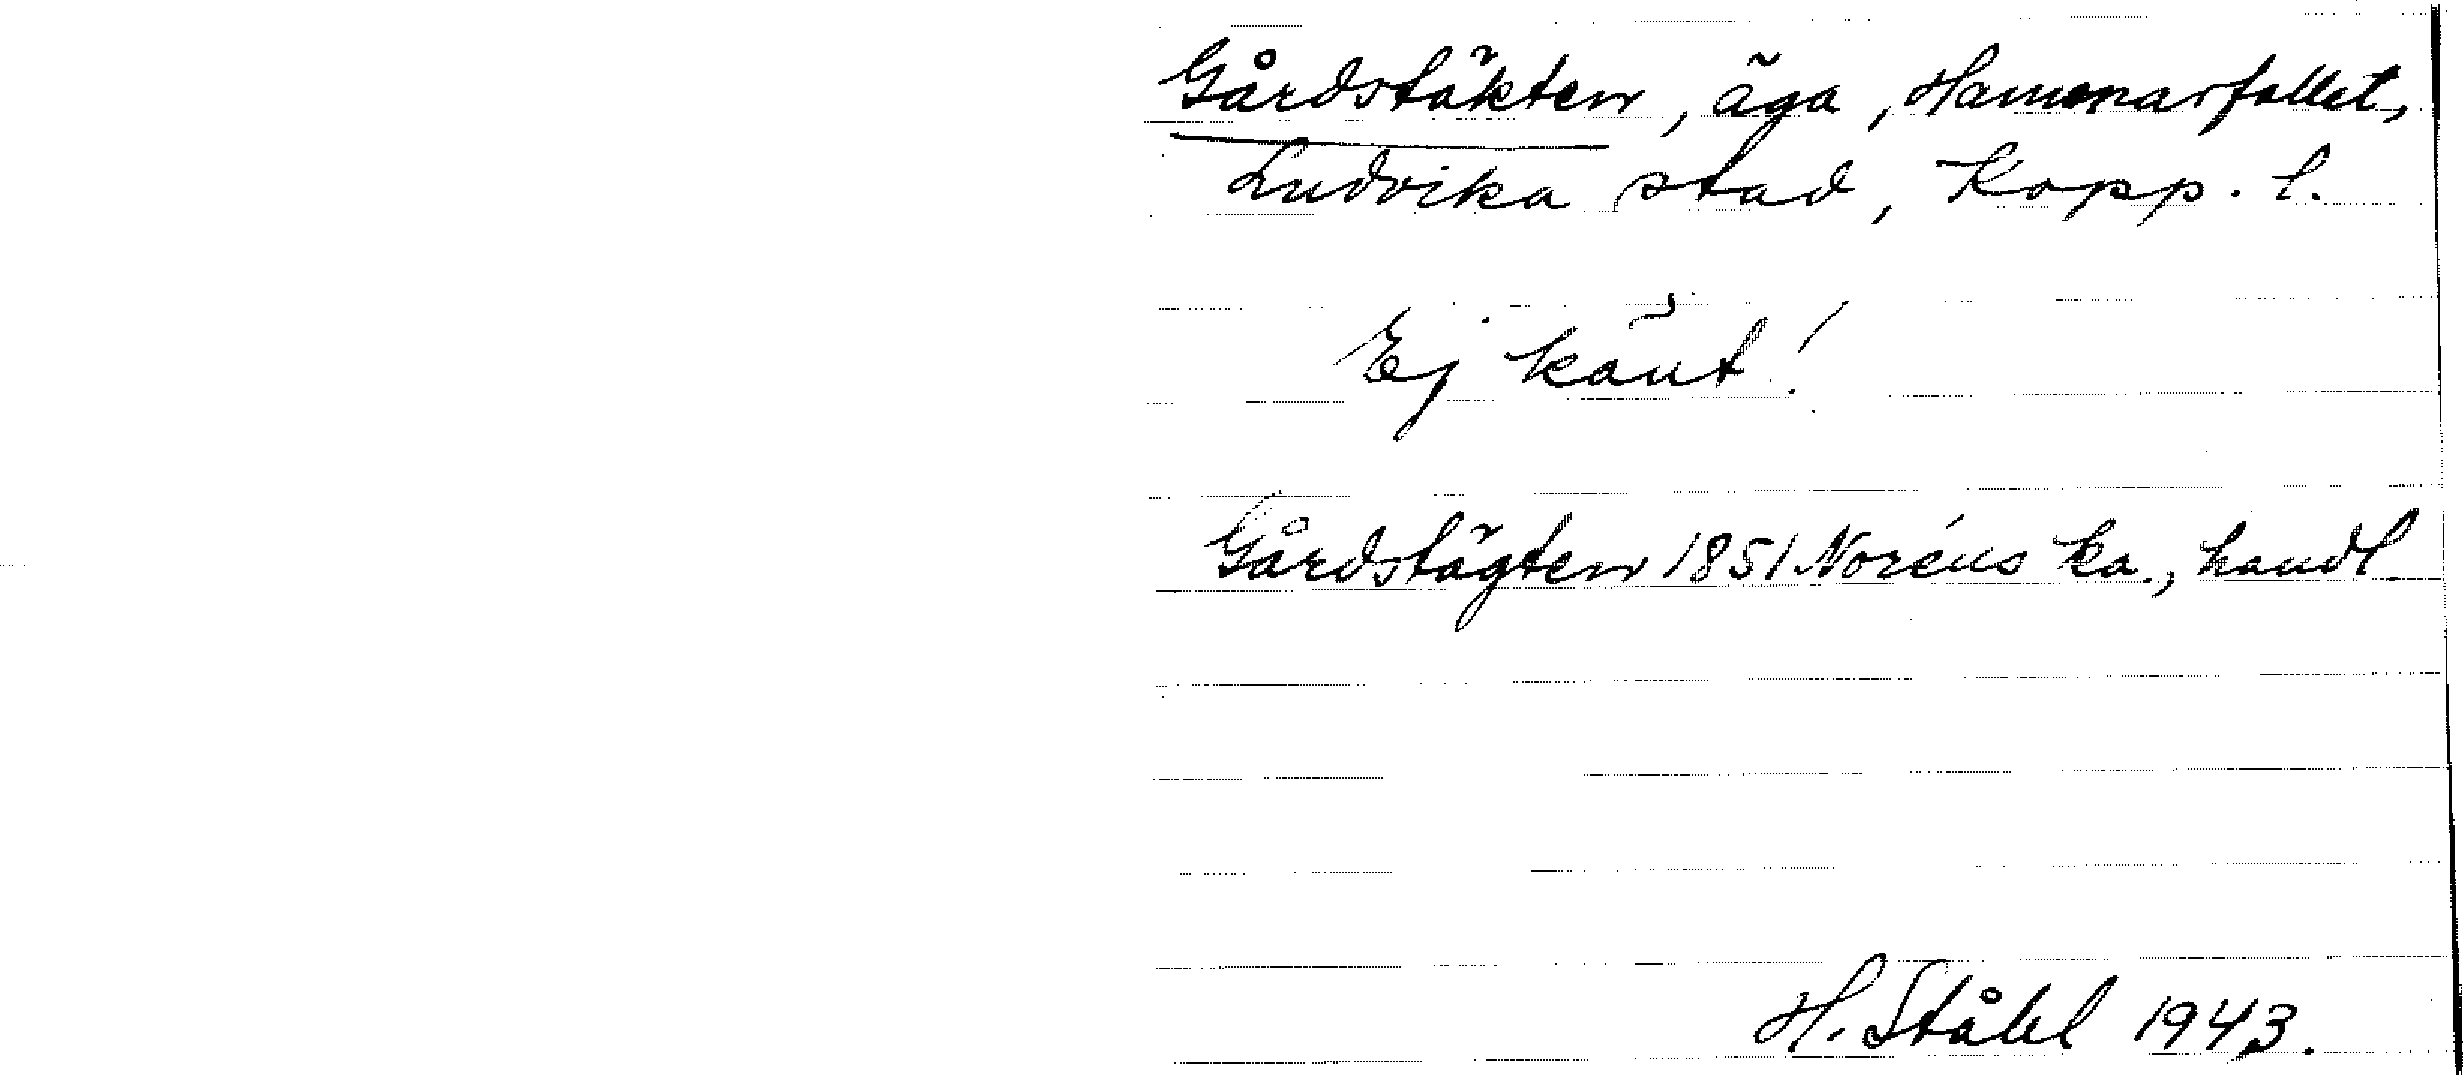 Gårdstäkten, äga, Hammarfallet,
Ludvika stad, Kopp. l.
Ej känt!
Gårdstägten 1851 Noréns ka., handl
H. Ståhl 1943.